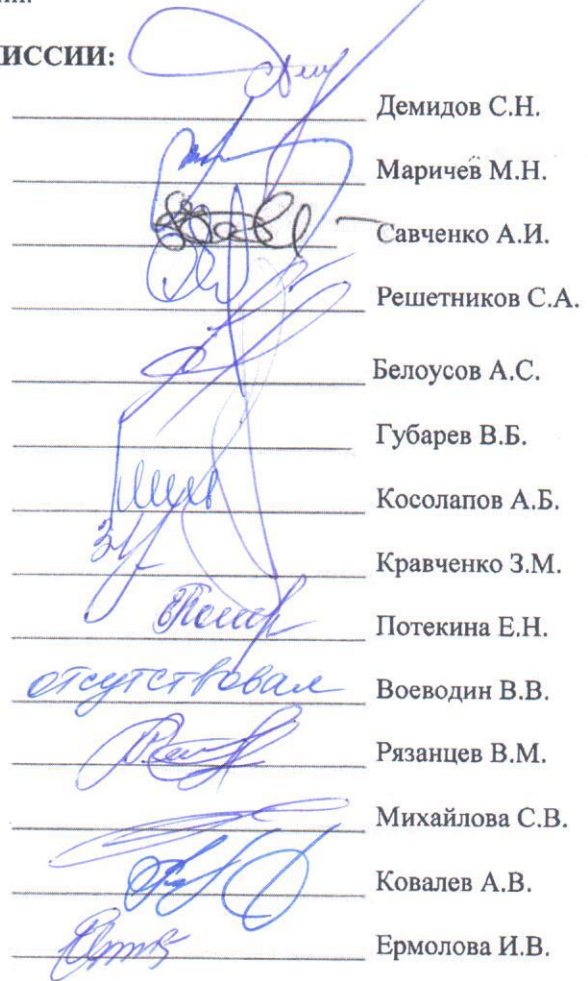 ИССИИ:
Демидов С.Н.
Маричев М.Н.
Савченко А.И.
Решетников С.А.
Белоусов А.С.
Губарев В.Б.
Косолапов А.Б.
Кравченко З.М.
Потекина Е.Н.
отсутствовал Воеводин В.В.
Рязанцев В.М.
Михайлова С.В.
Ковалев А.В.
Ермолова И.В.